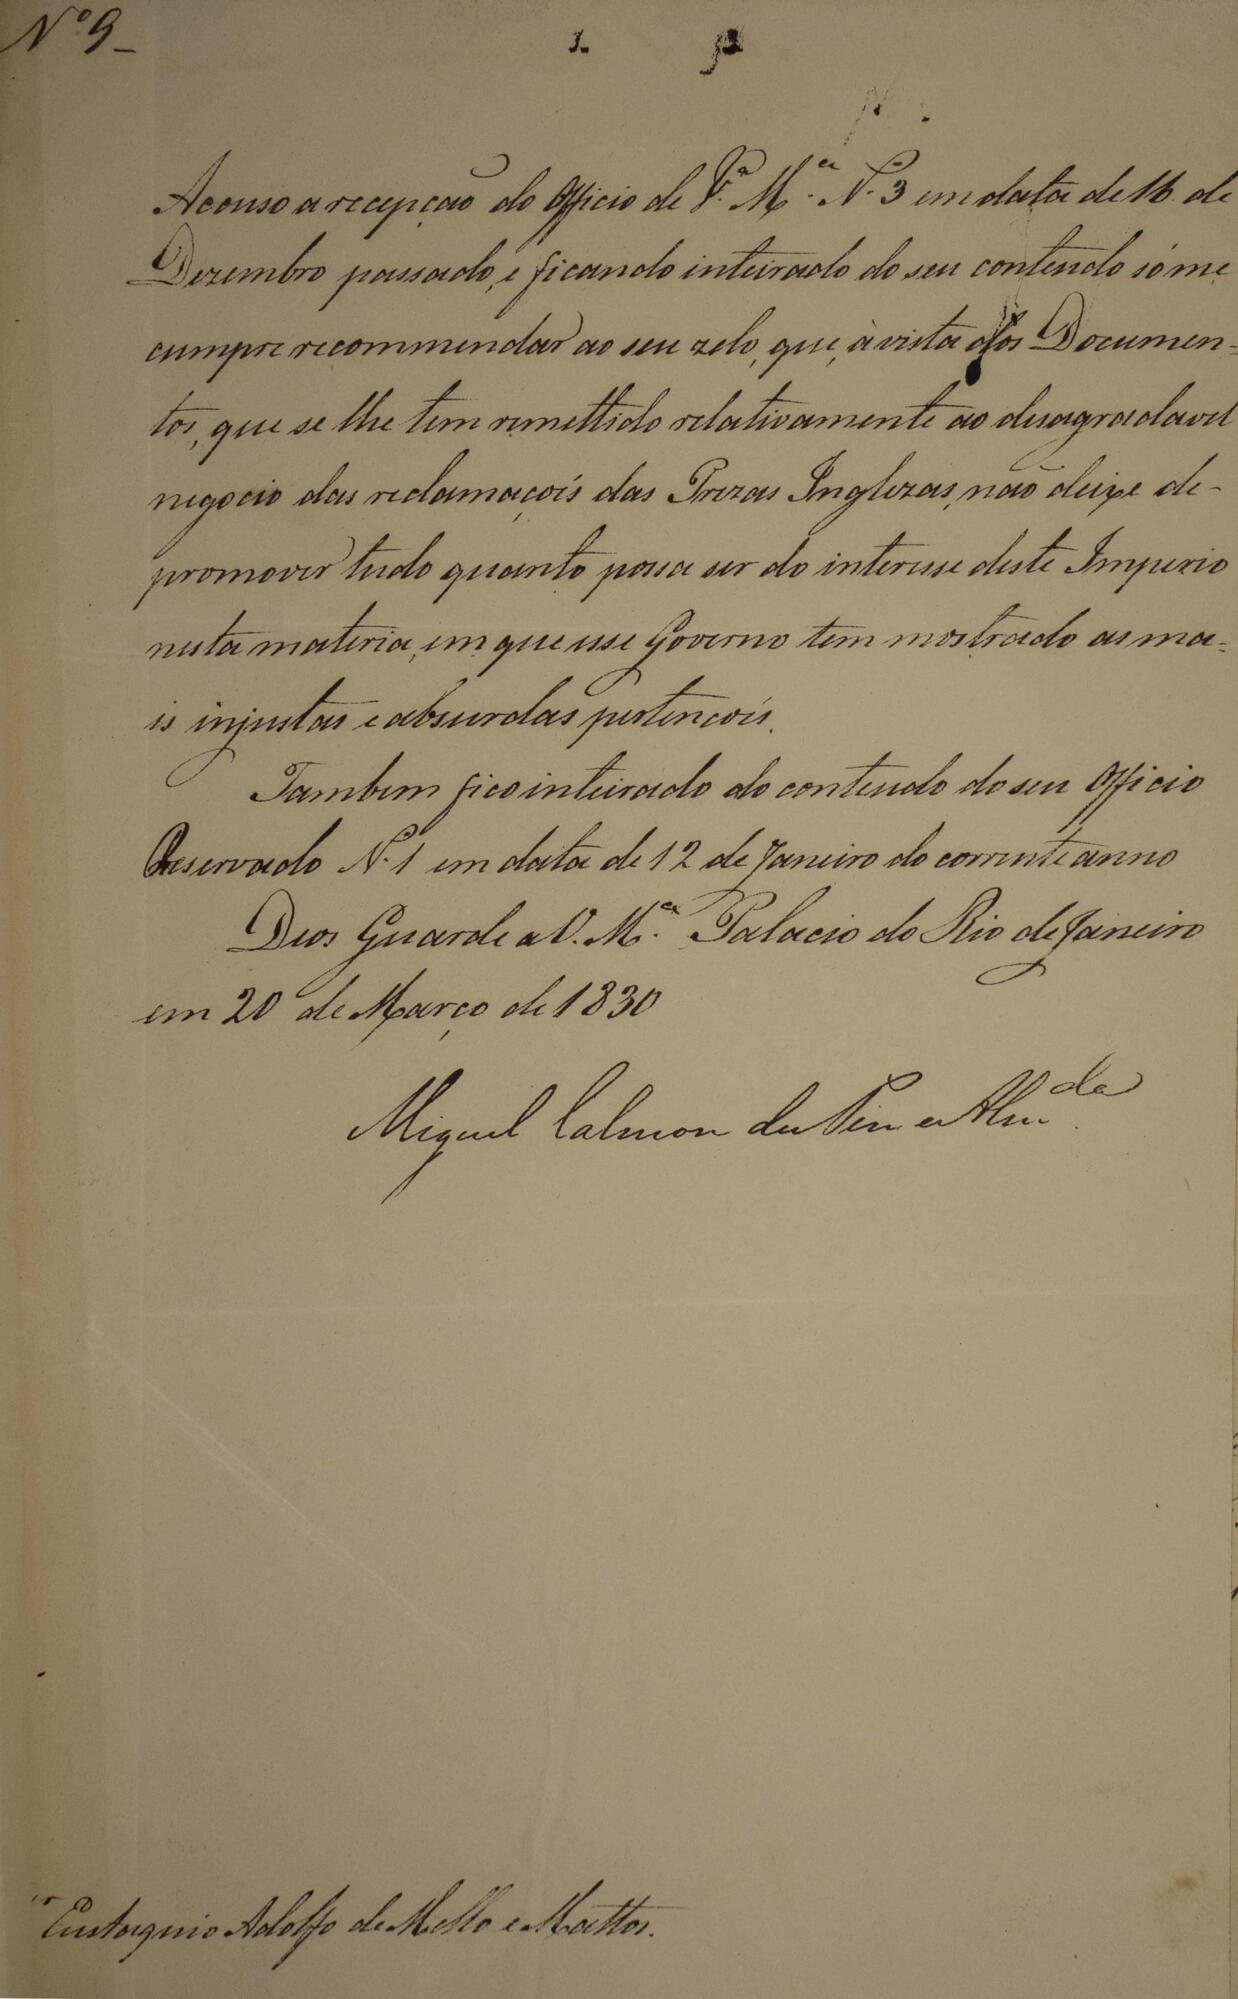 Nº 9
Acouso a recepção do Officio de V.ª M.ce N. 3 em data de 16 de
Dezembro passado, e ficando inteirado do seu conteudo só me
cumpre recommendar ao seu zelo, que, à vista dos Documen=
tos, que se lhe tem remettido relativamente ao desagradavel
negocio das reclamaçois das Prezas Inglezas, não deixe de-
promover tudo quanto possa ser do interesse deste Imperio
nesta materia, em que esse Governo tem mostrado as ma=
is injustas e absurdas pertençois.
Tambem fico inteirado do conteudo do seu Officio
Reservado N. 1 em data de 12 de Janeiro do corrente anno
Deos Guarde a V. M.ce Palacio do Rio de Janeiro
em 20 de Março de 1830
Miguel Calmon du Pin e Alm.da
Eustaquio Adolfo de Mello e Mattos.